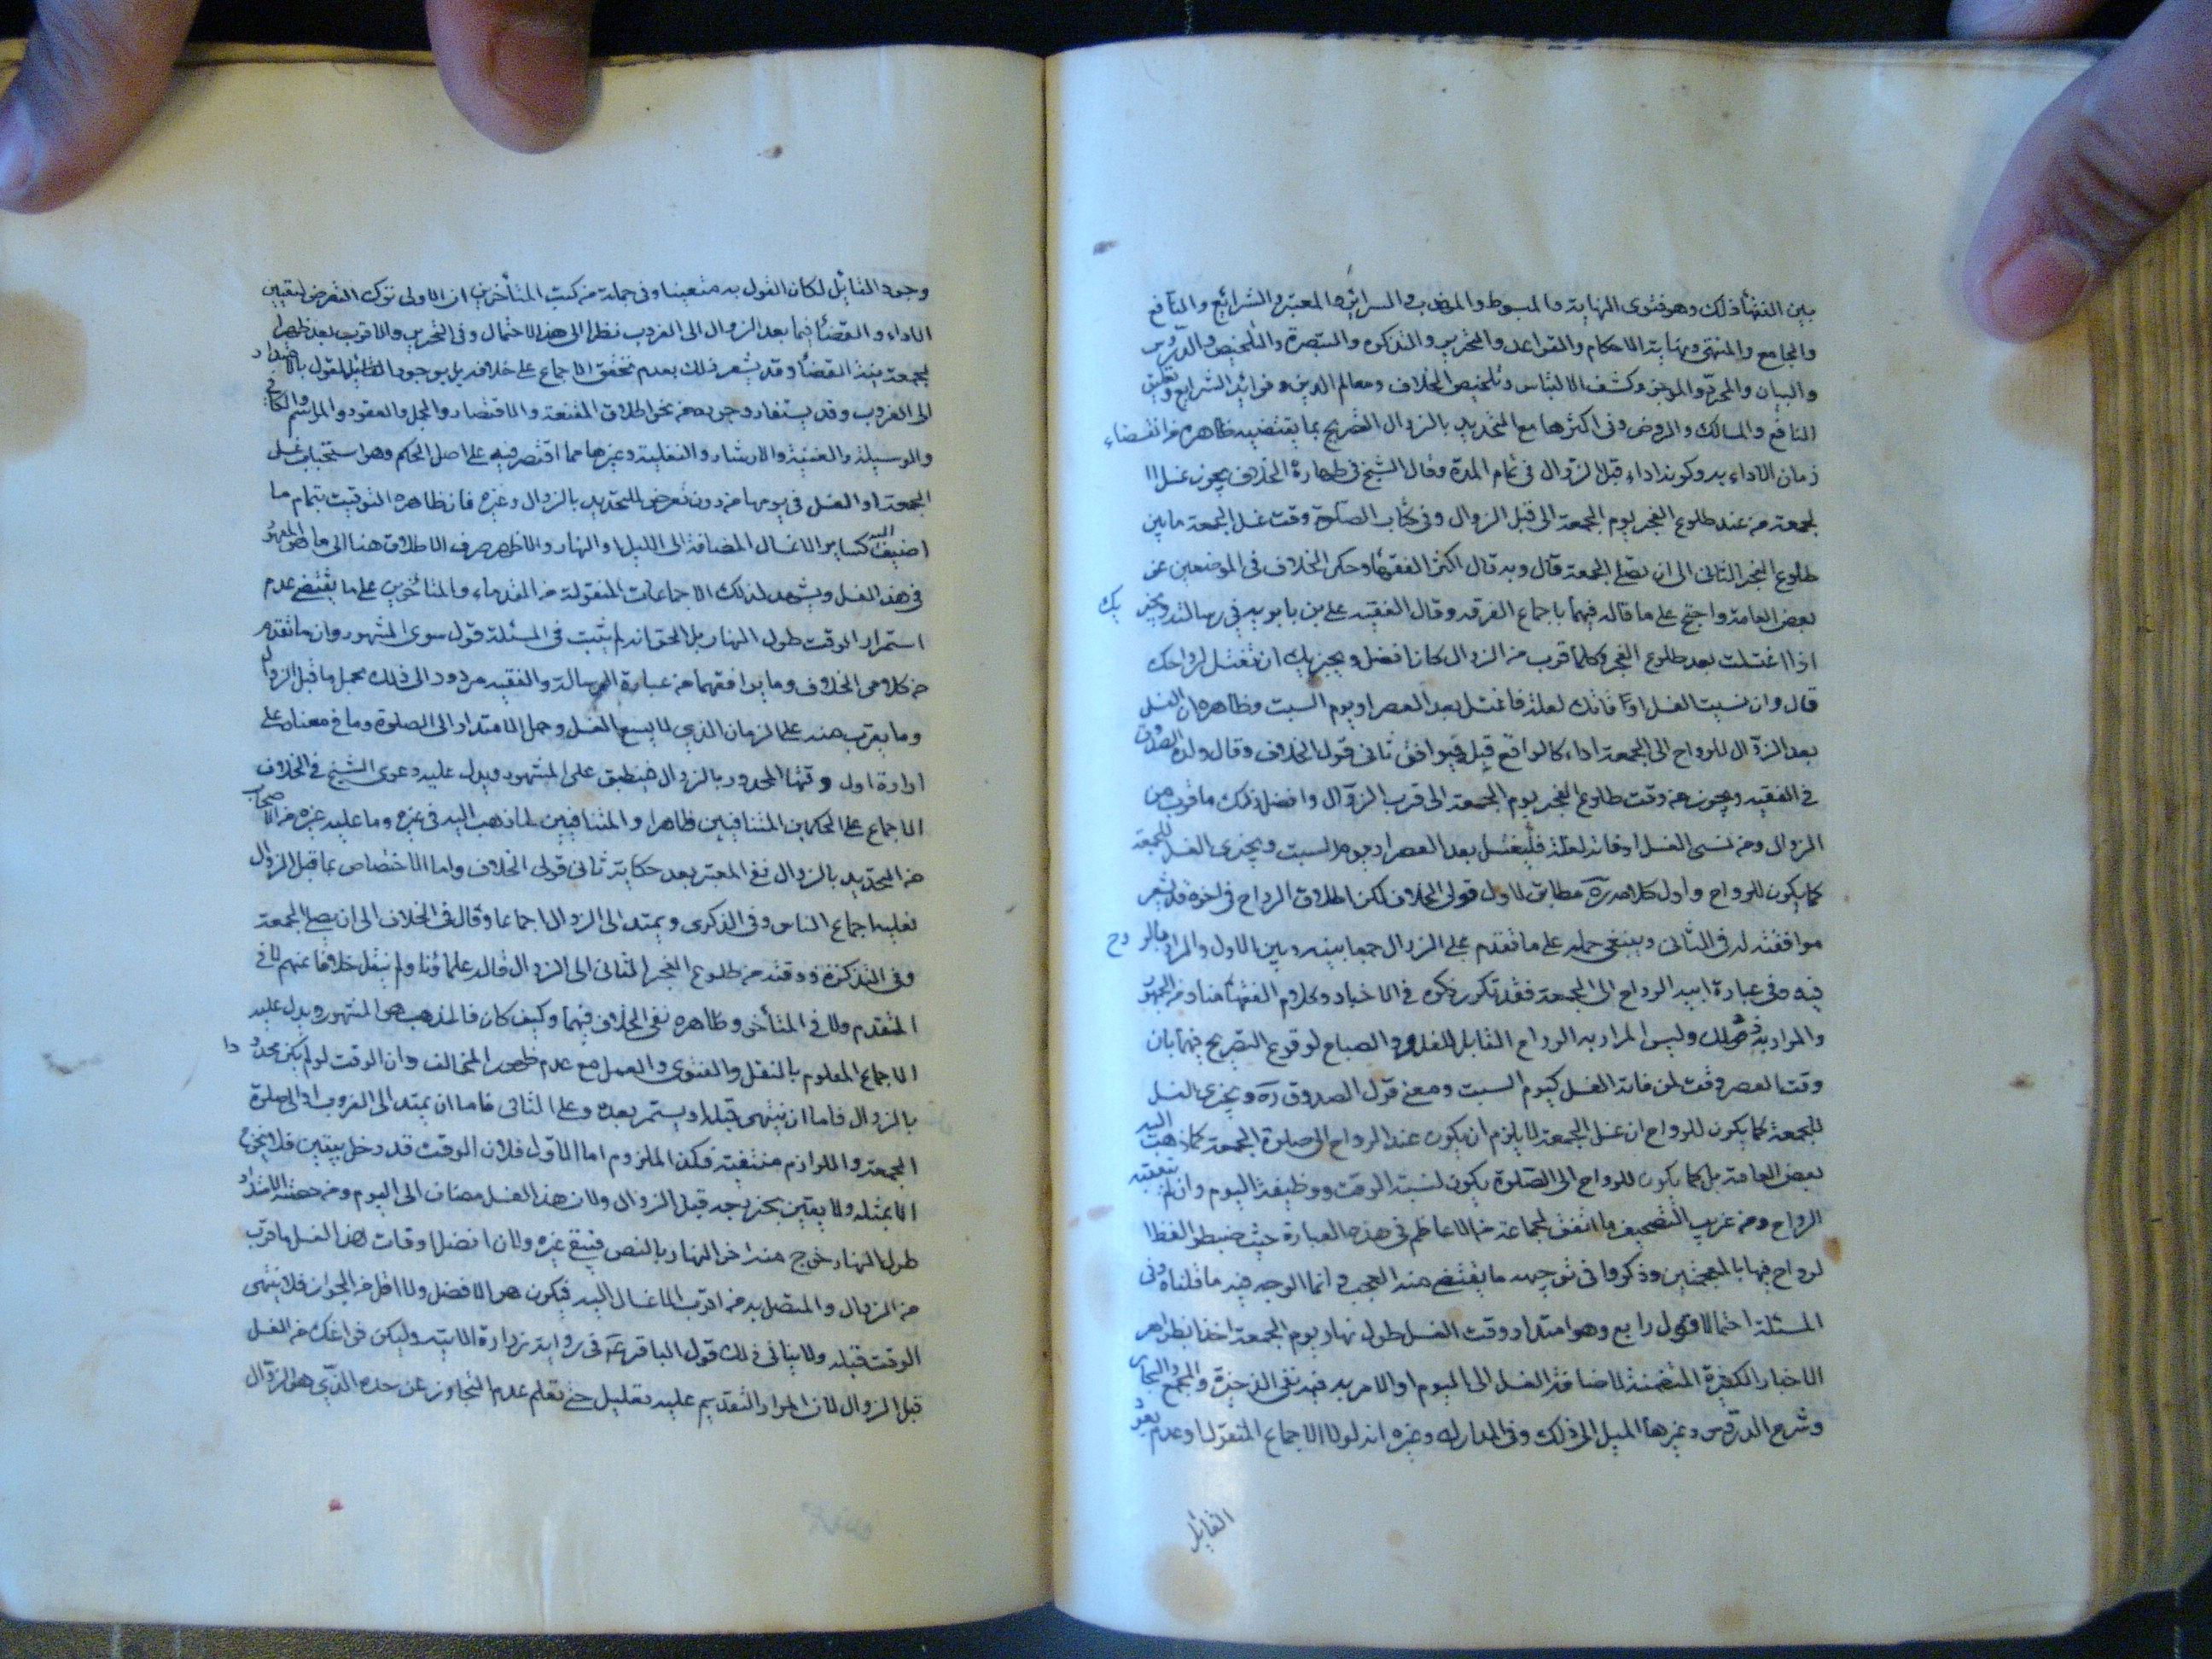 بين الفقهاء ذلك وهو فتوى النهاية والمبسوط والمهذب والسرائر والمعتبر والشرائع والنافع
والجامع والمنتهى ونهاية الاحكام والقواعد والتحرير والتذكرة والتبصرة والتلخيص والدروس
والبيان والمحرر والموجز وكشف الالتباس وتلخيص الخلاف ومعالم الدين وفوائد الشرايع وتعليق
النافع والمسالك والروض وفى اكثرها مع التحديد بالزوال التصريح بما يقتضيه ظاهره من انقضاء
زمان الاداء به وكونه اداء قبل الزوال فى تمام المدة وقال الشيخ فى طهارة الخلاف يجوز غسل ا
لجمعة من عند طلوع الفجر يوم الجمعة الى قبل الزوال وفى كتاب الصلوة وقت غسل الجمعة ما بين
طلوع الفجر الثانى الى ان يصلى الجمعة قال وبه قال اكثر الفقهاء وحكى الخلاف فى الموضعين عن
بعض العامة واحتج على ما قاله فيهما باجماع الفرقه وقال الفقيه على بن بابويه فى رسالته ويجز يك
اذا اغتسلت بعد طلوع الفجر وكلما قرب من الزوال كان افضل ويجزيك ان تغتسل لرواحك
قال وان نسيت الغسل او فاتك لعلة فاغتسل بعد العصر او يوم السبت وظاهره ان الغسل
بعد الزوال للرواح الى الجمعة اداء كالواقع قبله فيوافق ثانى قولى الخلاف وقال ولده الصدوق
فى الفقيه ويجوز من وقت طلوع الفجر يوم الجمعة الى قرب الزوال وافضل ذلك ما قرب من
الزوال ومن نسى الغسل او فاته لعلة فليغتسل بعد العصر او يوم السبت ويجزى الغسل للجمعة
كما يكون للرواح واول كلامه ره مطابق لاول قولى الخلاف لكن اطلاق الرواح فى اخره قد يشعر
موافقته له فى الثانى وينبغى حمله على ما تقدم على الزوال جمعا بينه وبين الاول والمراد بالر وح
فيه وفى عبارة ابيه الرواح الى الجمعة فقد تكرر ذكره فى الاخبار وكلام الفقهاء منا ومن الجمهور
والمراد به ذلك وليس المراد به الرواح القابل للغدو والصباح لوقوع التصريح فيهما بان
وقت العصر وقت لمن فاته الغسل كيوم السبت ومعنى قول الصدوق ره ويجزى الغسل
للجمعة كما يكون للرواح ان غسل الجمعة لا يلزم ان يكون عند الرواح الى صلوة الجمعة كما ذهب اليه
بعض العامة بل كما يكون للرواح الى الصلوة يكون لسنة الوقت ووظيفة اليوم وان لم يتعقبه
الرواح ومن غريب التصحيف ما اتفق لجماعة من الاعاظم فى هذه العبارة حيث ضبطوا لفظ ا
لرواح فيها بالمعجمتين وذكروا فى توجيهه ما يقتضى منه العجب وانما الوجه فيه ما قلناه وفى
المسئلة احتمال قول رابع وهو امتداد وقت الغسل طول نهار يوم الجمعة اخذا بظواهر
الاخبار الكثيرة المتضمنة لاضافة الغسل الى اليوم او الامر به فيه ففى الذخيرة والمجمع والبحار
وشرح الدروس وغيرها الميل الى ذلك وفى المدارك وغيره انه لولا الاجماع المنقول وعدم
القايل
وجود القائل لكان القول به متعينا وفى جملة من كتب المتأخرين ان الاولى ترك التعرض لتعيين
الاداء والقضاء فيما بعد الزوال الى الغروب نظرا الى هذا الاحتمال وفى التحرير والاقرب بعد ظهر ا
لجمعة نية القضاء وقد يشعر ذلك بعدم تحقق الاجماع على خلافه بل بوجود القائل للقول بالامتداد
الى الغروب وقد يستفاد وجوده من نحو اطلاق المقنعة والاقتصاد والجمل والعقود والمراسم والكافى
والوسيلة والغنية والارشاد والنفلية وغيرها مما اقتصر فيه على اصل الحكم وهو استحباب غسل
الجمعة او الغسل فى يومها من دون تعرض للتحديد بالزوال وغيره فان ظاهره التوقيت بتمام ما
اضيف اليه كساير الاغسال المضافة الى الليل او النهار والاظهر صرف الاطلاق هنا الى ما هو المعهود
فى هذا الغسل ويشهد لذلك الاجماعات المنقولة من القدماء والمتأخرين على ما يقتضى عدم
استمرار الوقت طول النهار بل الحق انه لم يثبت فى المسئلة قول سوى المشهور وان ما تقدم
من كلامى الخلاف وما يوافقهما من عبارة الرسالة والفقيه مردود الى ذلك بحمل ما قبل الزوال
وما يقرب منه على الزمان الذى لا يسع الغسل وحمل الامتداد الى الصلوة وما فى معناه على
ارادة اول وقتها المحدود بالزوال فينطبق على المشهور ويدل عليه دعوى الشيخ فى الخلاف
الاجماع على الحكمين المتنافيين ظاهرا والمتنافيين لما ذهب اليه فى غيره وما عليه غيره من الاصحاب
من التحديد بالزوال ففى المعتبر بعد حكاية ثانى قولى الخلاف واما الاختصاص بما قبل الزوال
فعليه اجماع الناس وفى الذكرى ويمتد الى الزوال اجماعا وقال فى الخلاف الى ان يصلى الجمعة
وفى التذكرة ووقته من طلوع الفجر الثانى الى الزوال قاله علماؤنا ولم ينقل خلافا عنهم لا فى
المتقدم ولا فى المتأخر وظاهره نفى الخلاف فيهما وكيف كان فالمذهب هو المشهور ويدل عليه
الاجماع المعلوم بالنقل والفتوى والعمل مع عدم ظهور المخالف وان الوقت لو لم يكن محدو دا
بالزوال فاما ان ينتهى قبله او يستمر بعده وعلى الثانى فاما ان يمتد الى الغروب او الى صلوة
الجمعة واللوازم منتفية فكذا الملزوم اما الاول فلان الوقت قد دخل بيقين فلا يخرج
الا بمثله ولا يقين بخروجه قبل الزوال ولان هذا الغسل مضاف الى اليوم ومن حقه الامتداد
طول النهار خرج منه اخر النهار بالنص فيبقى غيره ولان افضل اوقات هذا الغسل ما قرب
من الزوال والمتصل به من اقرب الاغسال اليه فيكون هو الافضل ولا اقل من الجواز فلا ينتهى
الوقت قبله ولا ينافى ذلك قول الباقر ع فى رواية زرارة الاتية وليكن فراغك من الغسل
قبل الزوال لان المراد التقديم عليه بقليل حتى تعلم عدم التجاوز عن حده الذى هو الزوال